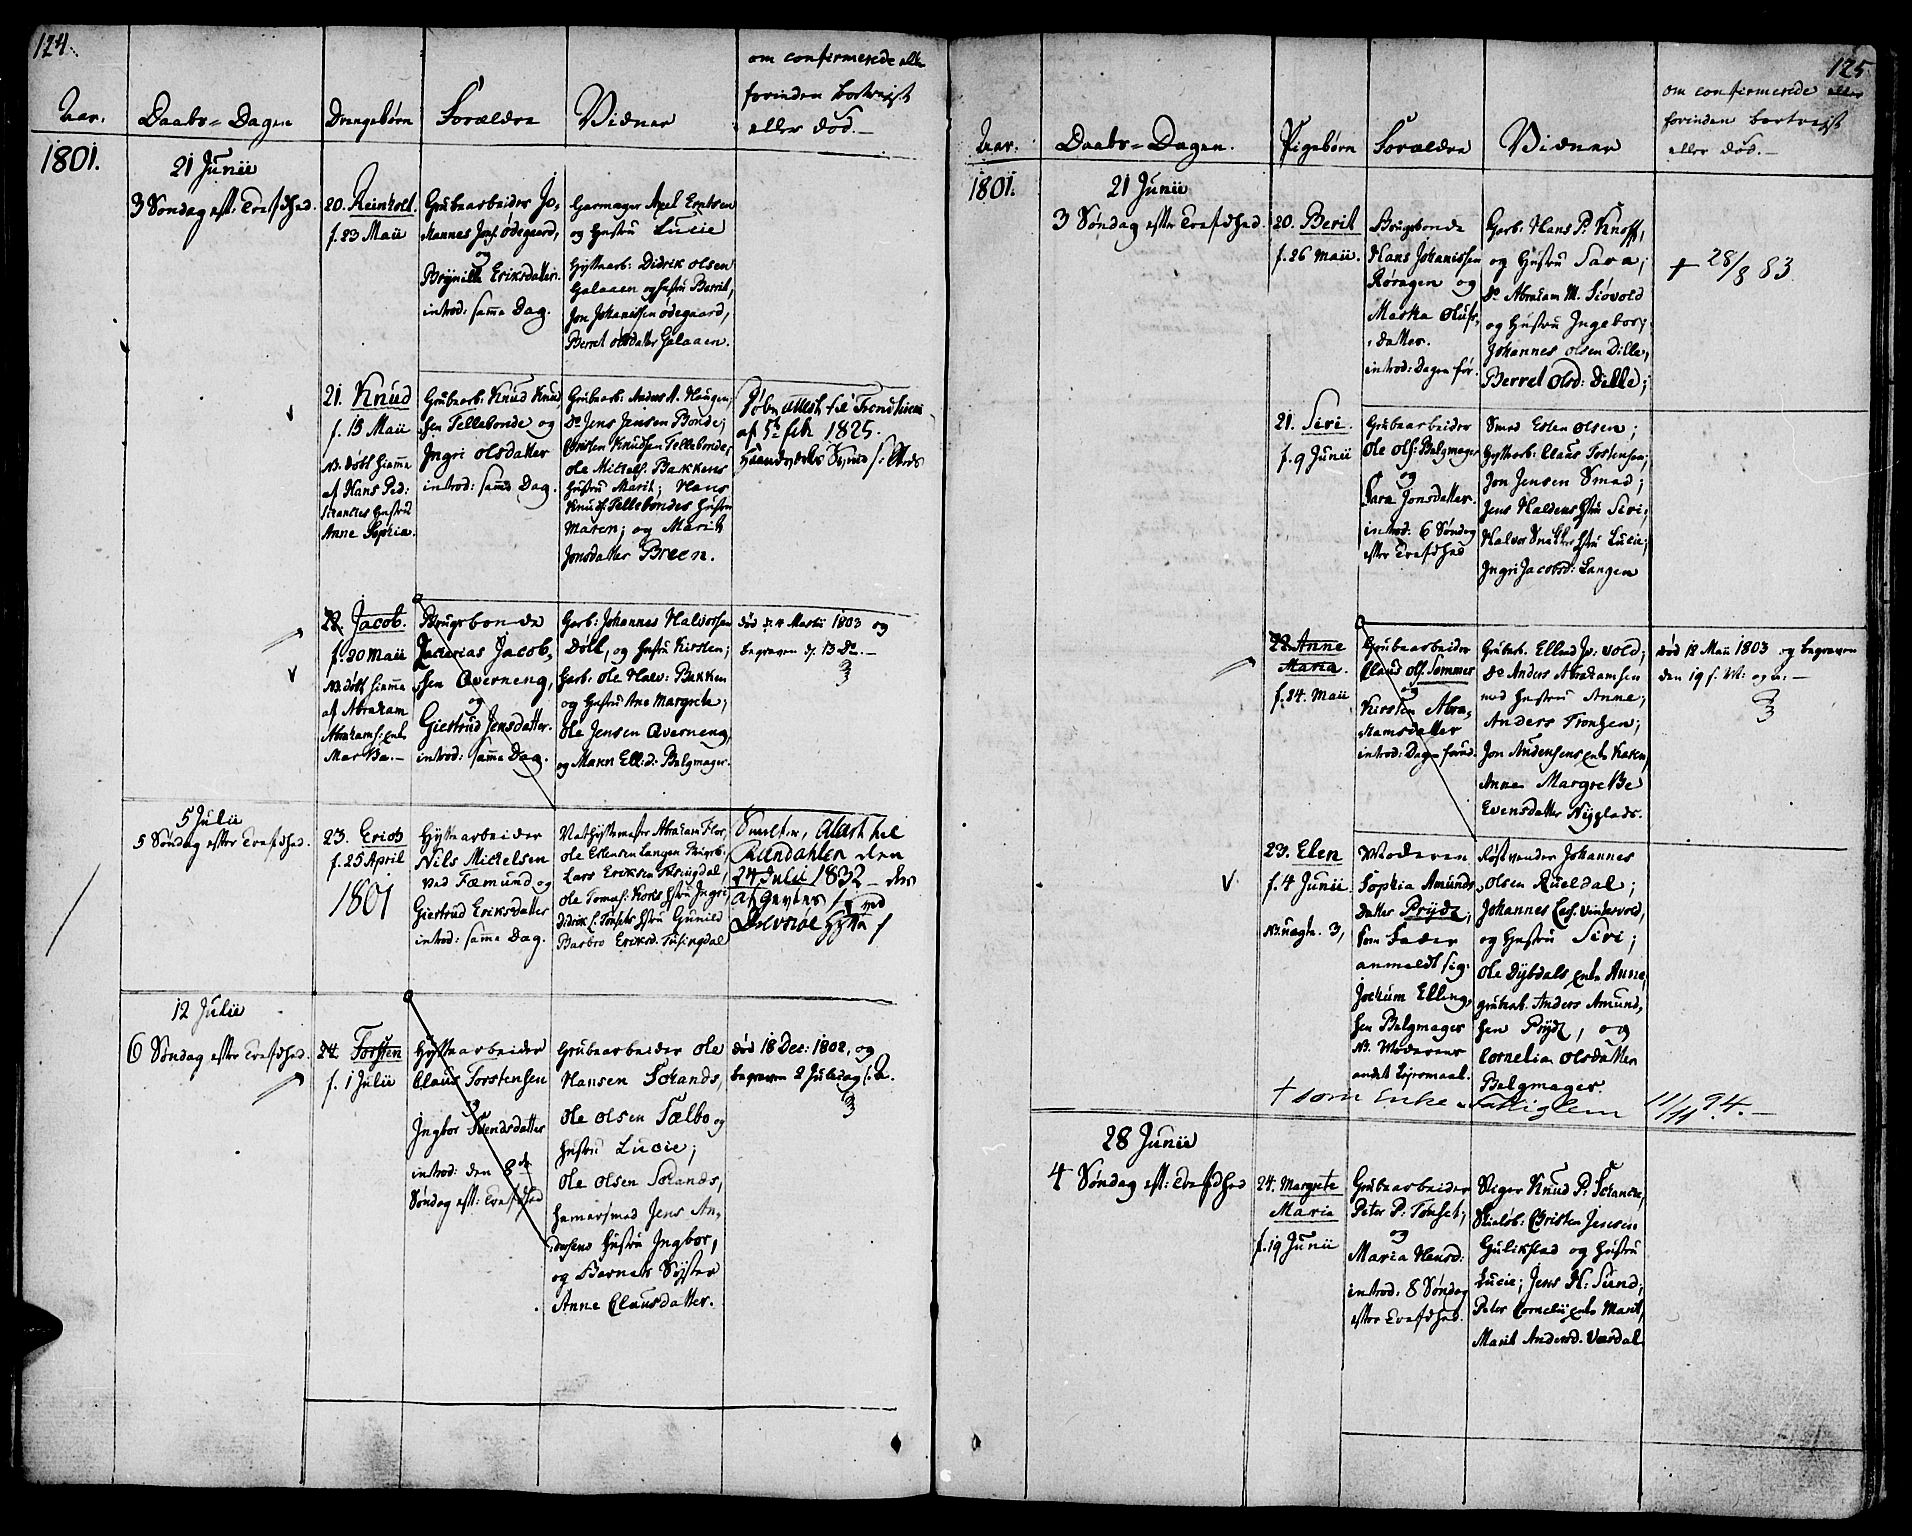 124.
Aar.
Daabs-Dagen
Drengebørn
Forældre
Vidner
om confirmerede eller
forinden bortreist
eller død.
1801.
21 Junii
3 Søndag eft: Trefdhed.
20. Reinholt.
f. 23 Maii
Grubearbeider Jo,
hannes Jons. Ødegaard,
og
Brynild Eriksdatter.
introd: samme Dag.
Garmager Axel Erntsen
og Hustru Lucie
Hyttearb: Didrik Olsen
Galaaen og Hustru Berrit,
Jon Johannissen Ødegaard,
Berret Olsdatter Galaaen.
21. Knud
f. 15 Maii
NB. døbt hiemme
af Hans Ped:
Schanckes Hustru
Anne Sophia.
Grubearb. Knud Knud,
sen Tellebonde og
Ingri Olsdatter
introd: samme Dag.
Grubearb. Anders A. Haugen;
Do Jens Jensen Bonde;
Christen Knudsen Tellebonde,
Ole Michels: Bakkens
Hustru Marit; Hans
Knuds: Tellebondes Hustru
Maren; og Marith
Jonsdatter Breen.
af 5te feb 1825.
22. Jacob.
f. 20 Maii
NB. døbt hiemme
af Abraham
Abrahams: Enke
Martha.
Brugsbonde
Zacharias Jacob,
sen Qverneng,
og
Giertrud Jensdatter.
introd: samme Dag.
Garb: Johannes Halvorsen
Døll, og Hustru Kirsten;
Garb: Ole Halv: Bakken
og Hustru Ane Margrete;
Ole Jensen Qverneng,
og Maren Ell:d: Belgmager.
død d. 4 Martii 1803 og
begraven d. 13 Do.
5 Julii
5 Søndag efter Trefdhed.
23. Erich
f. 25 April
1801
Hyttearbeider
Nils Michelsen
ved Fæmund og
Giertrud Eriksdatter
introd: samme Dag.
Vathyttemester Abraham Flor,
Ole Estensen Langen
Lars Eriksen
Ole Tomas: Kors Hstru Ingri;
Didrik C. Tønsets Hstru Gunild
Barbro Eriksd. Tufsingdal
Smelter, Attest til
den
24 Julii 1832
ved
Hytte
12 Julii
6 Søndag efter Trefdhed.
24 Torsten
f. 1 Julii
Hyttearbeider
Claus Torstensen
og
Ingbor Svendsdatter
introd: den 8de
Søndag eft: Trefdhed
Grubearbeider Ole
Hansen Sohands,
Ole Olsen Fælbo og
Hustru Lucie;
Ole Olsen Sohands,
Hamersmed Jens An,
dersens Hustru Ingbor,
og Barnets Syster
Anne Clausdatter.
død 18 Dec: 1802, og
begraven 2 Juledag
125
Aar.
Daabs-Dagen.
Pigebørn
Forældre
Vidner
om confirmerede eller
forinden bortreist
eller død.
1801.
21 Junii
3 Søndag efter Trefdhed
20. Berit
f. 26 Maii.
Brugsbonde
Hans Johanissen
Røragen og
Martha Olufs,
datter.
introd: Dagen før.
Garb. Hans P. Knoff,
og Hustru Sara;
Do Abraham M. Siøvold
og Hustru Ingebor;
Johannes Olsen Dille,
Berret Olsd: Dille;
+ 28/8 83
21. Siri.
f. 9 Junii
Grubearbeider
Ole Ols: Belgmager
og
Sara Jonsdatter.
introd: 6 Søndag
efter Trefdhed
Smed Esten Olsen;
Hyttearb: Claus Torstensen;
Jon Jensen Smed;
Jens Haldens Hstru Siri;
Halvor Snekker Hstru Lucie;
Ingri Jacobsd: Langen
22. Anne
Maria.
f. 24. Maii
Grubearbeider
Claud Ols. Sommer
og
Kirsten Abra,
hamsdatter
introd: Dagen forud.
Grubearb. Ellend Jo: Vold;
Do Anders Abrahamsen
med Hustru Anne;
Anders Tronsen;
Jon Andersens Enke Karen,
Anne Margrethe
Evensdatter Nygglads.
død 12 Maii 1803 og begraven
den 19 f. M: og A:
23. Elen
f. 4 Junii
NB. uægte. 3,
Moderen
Sophia Amunds
datter Prydz,
som Fader
anmeldt sig:
Jochum Elling,
sen Belgmager
NB. Moderens
andet Leiermaal.
Røstvender Johannes
Olsen Rueldal;
Johannes Vintervold,
og Hustru Siri;
Ole Dybdals Enke Anne,
grubearb. Anders Amund,
sen Prydz, og
Cornelia Olsdatter
Belgmager.
+ som Enke Fattiglem 11/11 94.
28 Junii
4 Søndag eft: Trefdhed
24. Margrete
Maria
f. 19 Junii
Grubearbeider
Peter P: Tønset;
og
Maria Hansd:
introd: 8 Søndag
efter Trefdhed.
Stiger Knud P: Schancke,
Skieløb: Christen Jensen
Gulikstad og Hustru
Lucie; Jens H. Sund;
Peter Cornelii Enke Marit,
Marit Andersd. Værdal